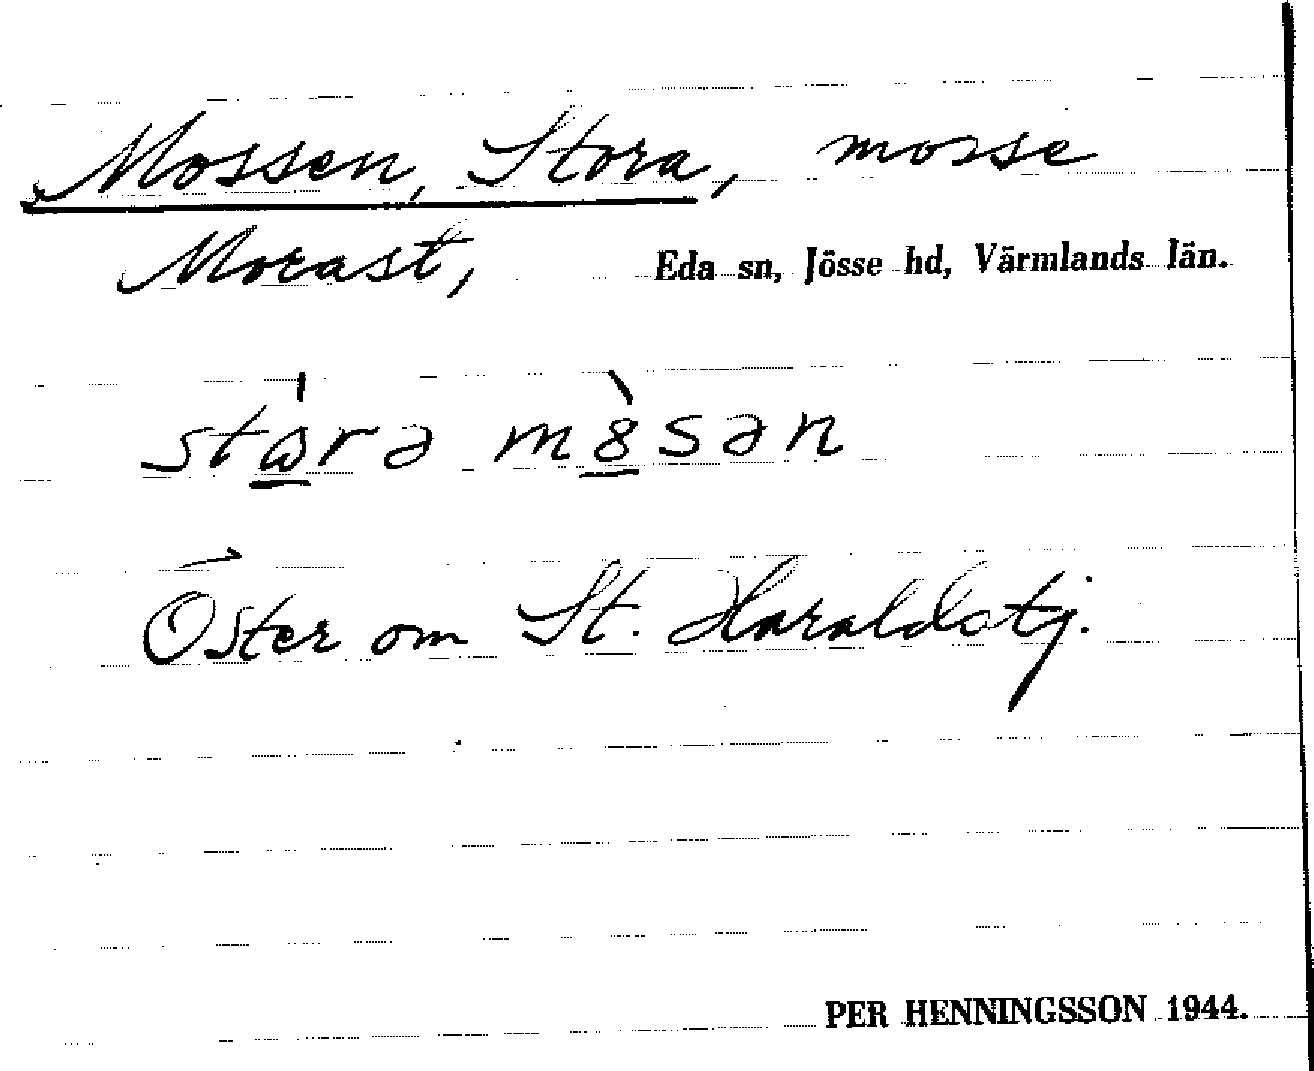 Mossen, Stora, mosse
Morast, Eda sn, Jösse hd, Värmlands län.
stɷ̀rə m8̀sən
Öster om St. Haraldstj.
PER HENNINGSSON 1944.